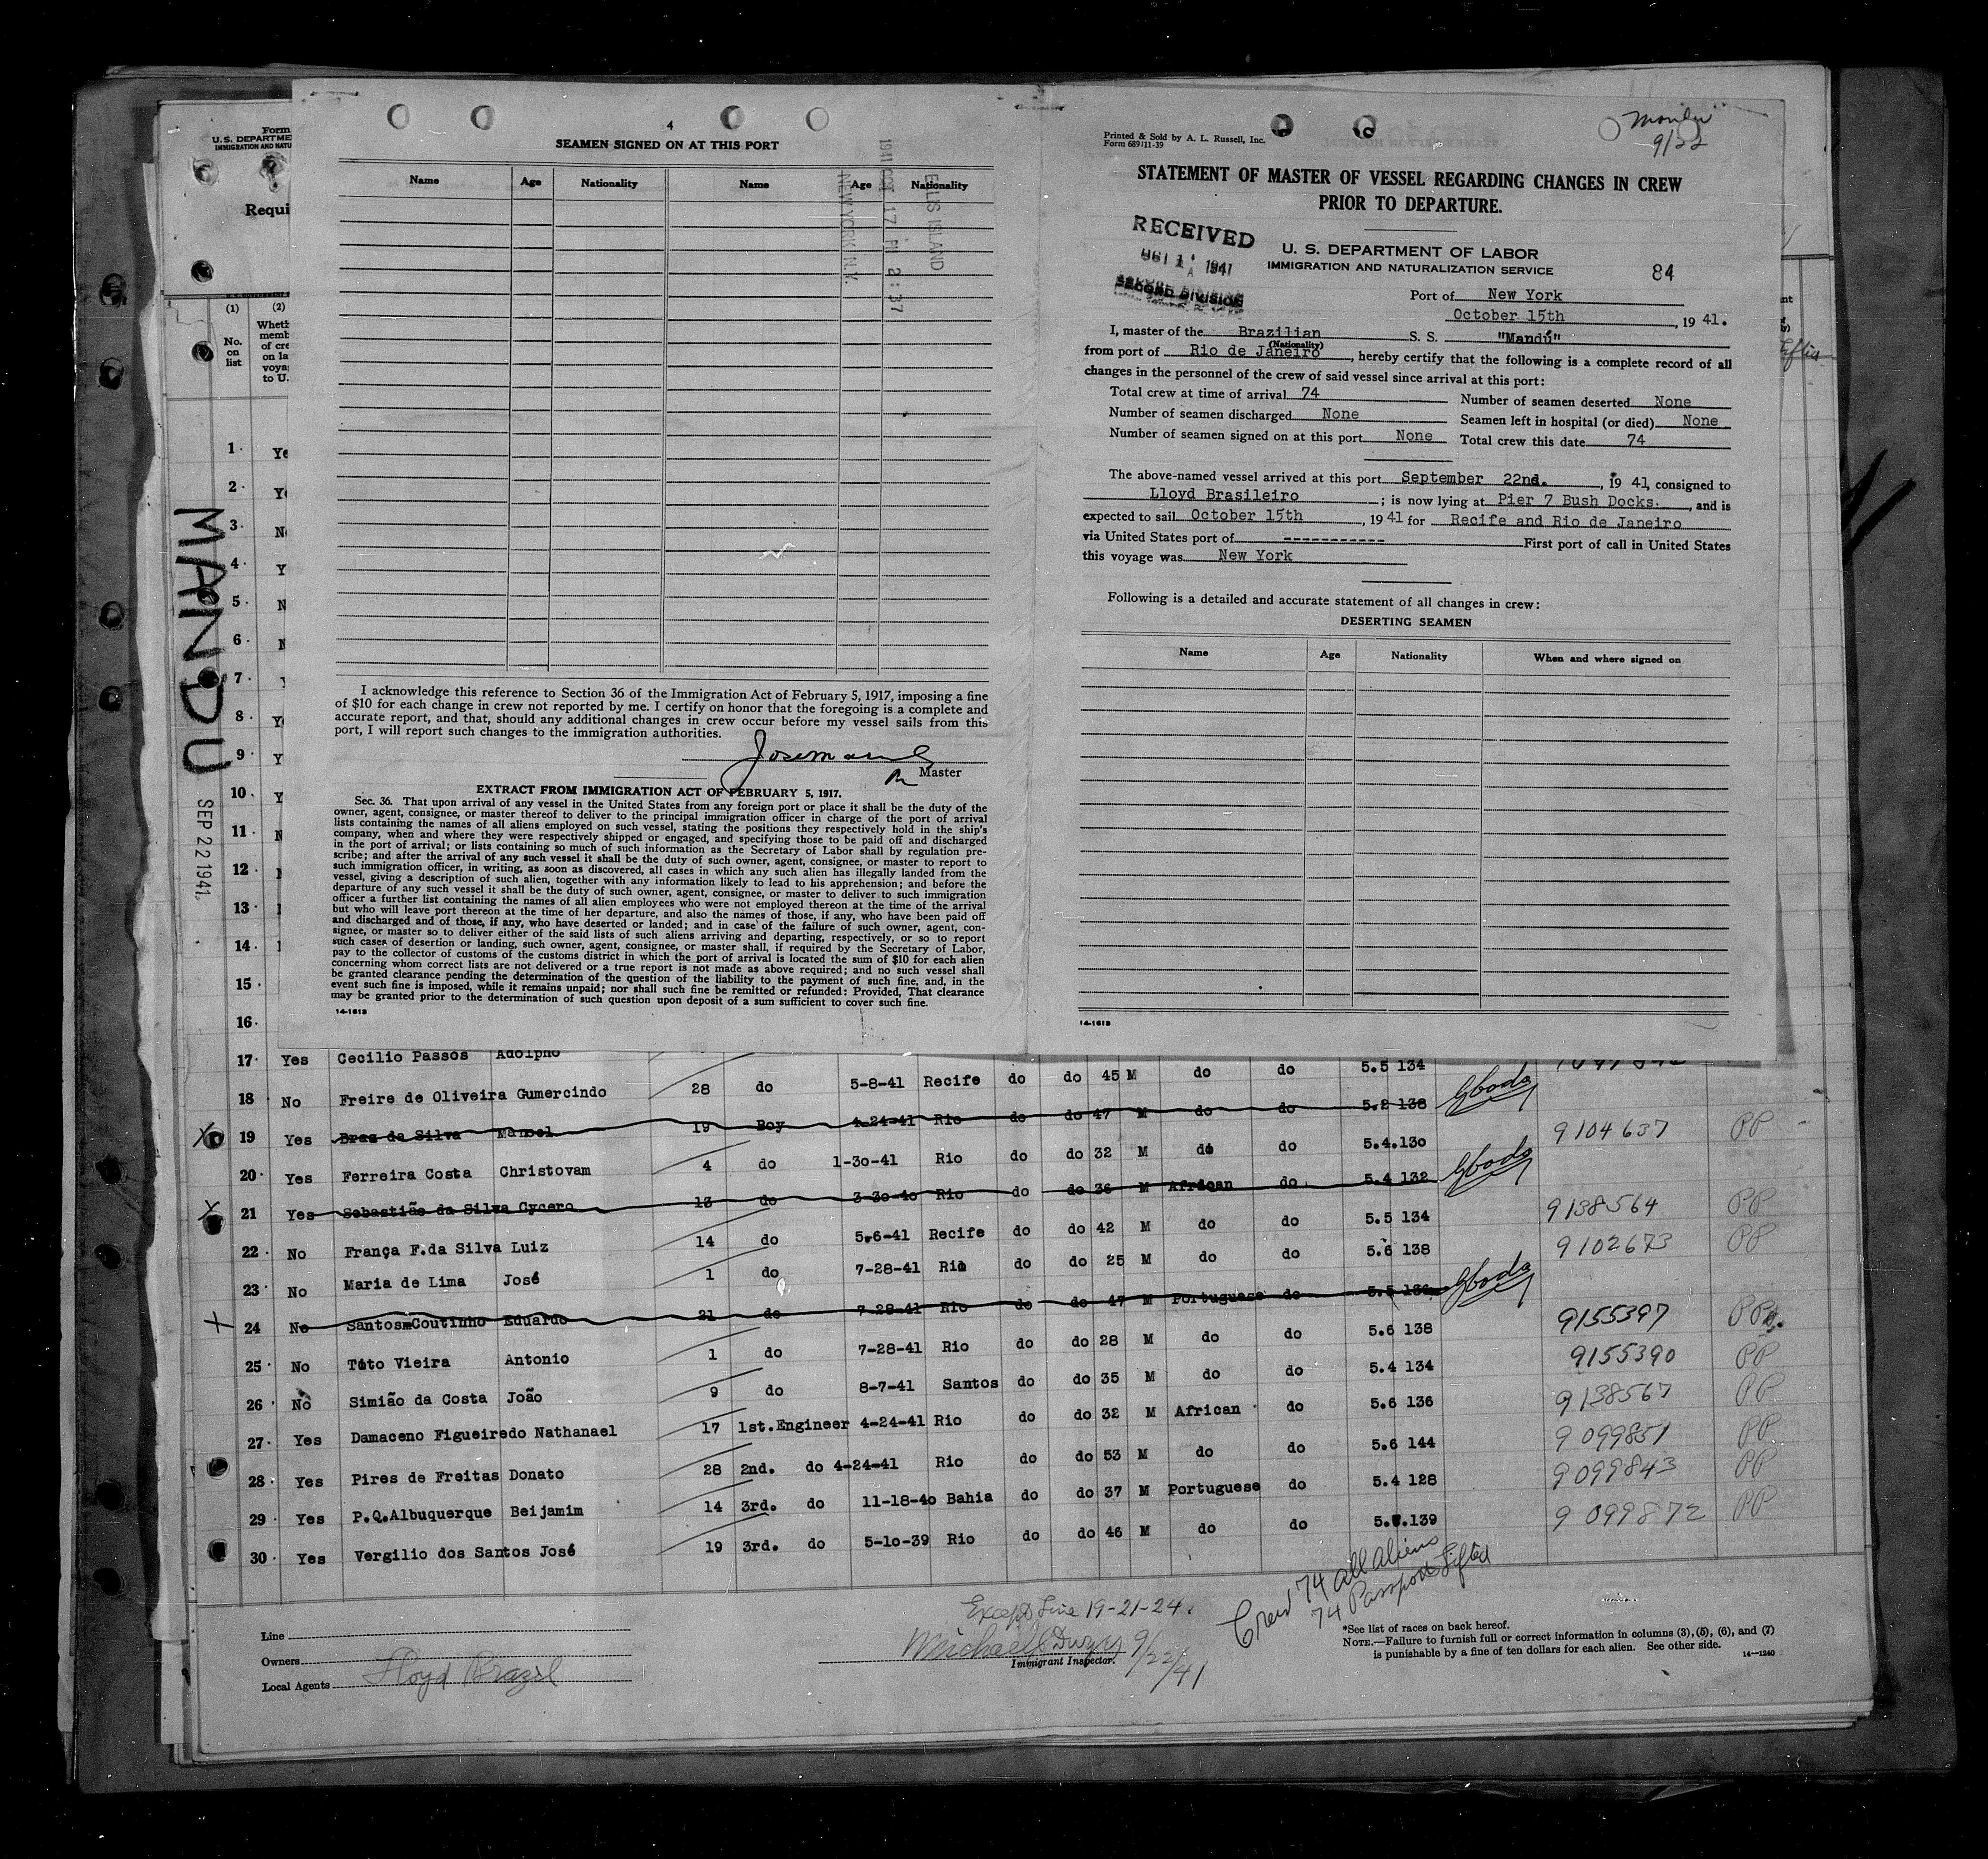 Form
U. S. DEPARTME
IMMIGRATION AND NATU
Requi
(1)
(2)
No.
on
list
Wheth
memb
of cre
on la
voya
to U.
MANDU
SEP 22 1941
4
SEAMEN SIGNED ON AT THIS PORT
Name Age Nationality Name Age Nationality
ELLIS ISLAND
1941 OCT 17 PM 2:37
NEW YORK N.Y.
I acknowledge this reference to Section 36 of the Immigration Act of February 5, 1917, imposing a fine
of $10 for each change in crew not reported by me. I certify on honor that the foregoing is a complete and
accurate report, and that, should any additional changes in crew occur before my vessel sails from this
port, I will report such changes to the immigration authorities.
Master
EXTRACT FROM IMMIGRATION ACT OF FEBRUARY 5, 1917.
Sec. 36. That upon arrival of any vessel in the United States from any foreign port or place it shall be the duty of the
owner, agent, consignee, or master thereof to deliver to the principal immigration officer in charge of the port of arrival
lists containing the names of all aliens employed on such vessel, stating the positions they respectively hold in the ship's
company, when and where they were respectively shipped or engaged, and specifying those to be paid off and discharged
in the port of arrival; or lists containing so much of such information as the Secretary of Labor shall by regulation pre-
scribe; and after the arrival of any such vessel it shall be the duty of such owner, agent, consignee, or master to report to
such immigration officer, in writing, as soon as discovered, all cases in which any such alien has illegally landed from the
vessel, giving a description of such alien, together with any information likely to lead to his apprehension; and before the
departure of any such vessel it shall be the duty of such owner, agent, consignee, or master to deliver to such immigration
officer a further list containing the names of all alien employees who were not employed thereon at the time of the arrival
but who will leave port thereon at the time of her departure, and also the names of those, if any, who have been paid off
and discharged and of those, if any, who have deserted or landed; and in case of the failure of such owner, agent, con-
signee, or master so to deliver either of the said lists of such aliens arriving and departing, respectively, or so to report
such cases of desertion or landing, such owner, agent, consignee, or master shall, if required by the Secretary of Labor,
pay to the collector of customs of the customs district in which the port of arrival is located the sum of $10 for each alien
concerning whom correct lists are not delivered or a true report is not made as above required; and no such vessel shall
be granted clearance pending the determination of the question of the liability to the payment of such fine, and, in the
event such fine is imposed, while it remains unpaid; nor shall such fine be remitted or refunded: Provided, That clearance
may be granted prior to the determination of such question upon deposit of a sum sufficient to cover such fine.
14-1613
Printed & Sold by A. L. Russell, Inc.
Form 689 11-39
9/22
STATEMENT OF MASTER OF VESSEL REGARDING CHANGES IN CREW
PRIOR TO DEPARTURE.
RECEIVED
1941
SECOND DIVISION
U. S. DEPARTMENT OF LABOR
IMMIGRATION AND NATURALIZATION SERVICE
84
Port of New York
October 15th, 1941.
I, master of the Brazilian S. S. "Mandú"
(Nationality)
from port of Rio de Janeiro, hereby certify that the following is a complete record of all
changes in the personnel of the crew of said vessel since arrival at this port:
Total crew at time of arrival 74 Number of seamen deserted None
Number of seamen discharged None Seamen left in hospital (or died) None
Number of seamen signed on at this port None Total crew this date 74
The above-named vessel arrived at this port September 22nd., 1941, consigned to
Lloyd Brasileiro; is now lying at Pier 7 Bush Docks., and is
expected to sail October 15th, 1941 for Recife and Rio de Janeiro
via United States port of ----------- First port of call in United States
this voyage was New York
Following is a detailed and accurate statement of all changes in crew:
DESERTING SEAMEN
Name Age Nationality When and where signed on
14-1613
1
2
3
4
5
6
7
8
9
10
11
12
13
14
15
16
17 Yes Cecilio Passos Adolpho
18 No Freire de Oliveira Gumercindo 28 do 5-8-41 Recife do do 45 M do do 5.5 134
19 Yes Braz da Silva Manoel 19 Boy 4-24-41 Rio do do 47 M do do 5.2 138
20 Yes Ferreira Costa Christovam 4 do 1-30-41 Rio do do 32 M do do 5.4.130 9104637 PP
21 Yes Sebastião da Silva Cycero 13 do 3-30-40 Rio do do 36 M African do 5.4 132
22 No França F.da Silva Luiz 14 do 5-6-41 Recife do do 42 M do do 5.5 134 9138564 PP
23 No Maria de Lima José 1 do 7-28-41 Rio do do 25 M do do 5.6 138 9102673 PP
24 No Santos Coutinho Eduardo 21 do 7-28-41 Rio do do 47 M Portuguese do 5.5 136
25 No Toto Vieira Antonio 1 do 7-28-41 Rio do do 28 M do do 5.6 138 9155397 PP
26 No Simião da Costa João 9 do 8-7-41 Santos do do 35 M do do 5.4 134 9155390 PP
27 Yes Damaceno Figueiredo Nathanael 17 1st.Engineer 4-24-41 Rio do do 32 M African do 5.6 136 9138567 PP
28 Yes Pires de Freitas Donato 28 2nd. do 4-24-41 Rio do do 53 M do do 5.6 144 9099851 PP
29 Yes P.Q.Albuquerque Beijamim 14 3rd. do 11-18-40 Bahia do do 37 M Portuguese do 5.4 128 9099843 PP
30 Yes Vergilio dos Santos José 19 3rd. do 5-10-39 Rio do do 46 M do do 139 9099872 PP
Line
Owners
Local Agents Lloyd Brazil
Except Line 19-21-24.
Michael 9/22/41
Immigrant Inspector.
Crew 74 all aliens
74 Passports Lifted
*See list of races on back hereof.
NOTE.—Failure to furnish full or correct information in columns (3), (5), (6), and (7)
is punishable by a fine of ten dollars for each alien. See other side.
14—1240